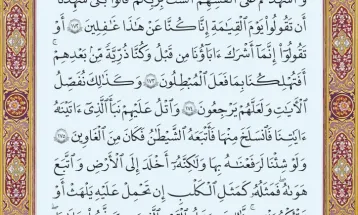 أَن تَقُولُوا۟ يَوْمَ ٱلْقِيَـٰمَةِ إِنَّا كُنَّا عَنْ هَـٰذَا غَـٰفِلِينَ ۝١٧٢ أَوْ
تَقُولُوٓا۟ إِنَّمَآ أَشْرَكَ ءَابَآؤُنَا مِن قَبْلُ وَكُنَّا ذُرِّيَّةً مِّنۢ بَعْدِهِمْ ۖ
أَفَتُهْلِكُنَا بِمَا فَعَلَ ٱلْمُبْطِلُونَ ۝١٧٣ وَكَذَٰلِكَ نُفَصِّلُ
ٱلْـَٔايَـٰتِ وَلَعَلَّهُمْ يَرْجِعُونَ ۝١٧٤ وَٱتْلُ عَلَيْهِمْ نَبَأَ ٱلَّذِىٓ ءَاتَيْنَـٰهُ
ءَايَـٰتِنَا فَٱنسَلَخَ مِنْهَا فَأَتْبَعَهُ ٱلشَّيْطَـٰنُ فَكَانَ مِنَ ٱلْغَاوِينَ ۝١٧٥
وَلَوْ شِئْنَا لَرَفَعْنَـٰهُ بِهَا وَلَـٰكِنَّهُۥٓ أَخْلَدَ إِلَى ٱلْأَرْضِ وَٱتَّبَعَ
هَوَىٰهُ ۚ فَمَثَلُهُۥ كَمَثَلِ ٱلْكَلْبِ إِن تَحْمِلْ عَلَيْهِ يَلْهَثْ أَوْ